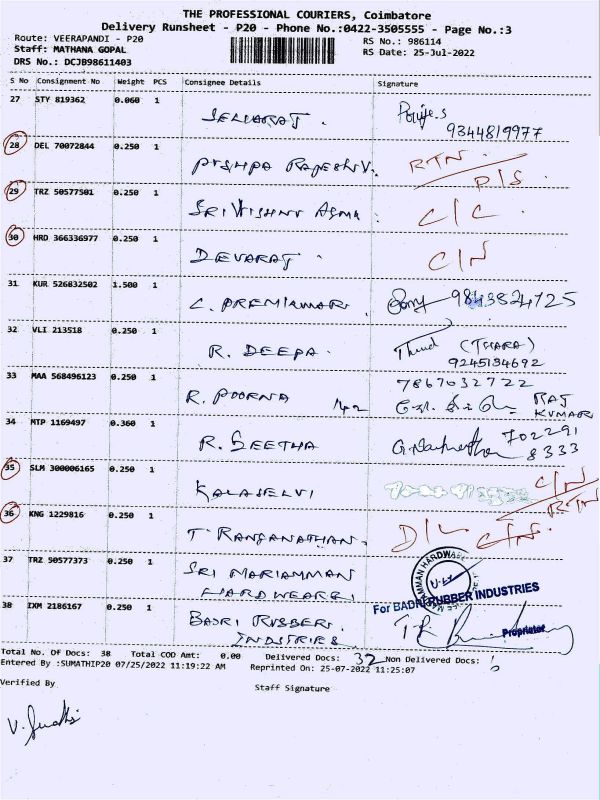 THE PROFESSIONAL COURIERS, Coimbatore
Delivery Runsheet - P20 - Phone No.:0422-3505555 - Page No.:3
Route: VEERAPANDI - P20
RS No.: 986114
Staff: MATHANA GOPAL
RS Date: 25-Jul-2022
DRS No.: DCJB98611403
S No Consignment No Weight PCS Consignee Details Signature
27 STY 819362 0.060 1 SELVARAJ.
9344819977
28 DEL 70072844 0.250 1 PUSHPA RAJESH V. RTN
D/S
29 TRZ 50577501 0.250 1 SRI VISHNU AGMA C/C
30 HRD 366336977 0.250 1 DEVARAJ. C/N
31 KUR 526832502 1.500 1 C. PREMKUMAR 9843524725
32 VLI 213518 0.250 1 R. DEEPA. (THARA)
9245134692
33 MAA 568496123 0.250 1 R. POORNA 7867032722
RAJ
KUMAR
34 MTP 1169497 0.360 1 R. SEETHA 702291
8333
35 SLM 300006165 0.250 1 KALASELVI C/N
RTN
36 KNG 1229816 0.250 1 T. RANGANATHAN. D/L C/N.
37 TRZ 50577373 0.250 1 SRI MARIAMMAN
HARDWEARS
38 IXM 2186167 0.250 1 BADRI RUBBER
INDUSTRIES
For BADRI RUBBER INDUSTRIES
Proprietor
Total No. Of Docs: 38 Total COD Amt: 0.00 Delivered Docs: 32 Non Delivered Docs: 6
Entered By :SUMATHIP20 07/25/2022 11:19:22 AM Reprinted On: 25-07-2022 11:25:07
Verified By
Staff Signature